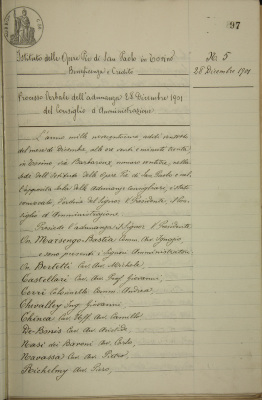 97
Istituto delle Opere Pie di San Paolo in Torino
Beneficenza e Credito
N. 5
28 Dicembre 1901
Processo Verbale dell'adunanza 28 Dicembre 1901
del Consiglio d'Amministrazione
L'anno mille novecentouno addì
del mese di Dicembre, alle ore venti e minuti trenta
in Torino via Barbaroux numero trentotto, nella
Sede dell'Istituto delle Opere Pie di San Paolo e nel
l'apposita sala delle adunanze consigliari, è stato
convocato, d'ordine del Signor Presidente, il Con
siglio d'Amministrazione.
Presiede l'adunanza il Signor Presidente
Marsengo-Bastia Comm. Avv. Ignazio
e sono presenti i Signori Amministratori
Bertetti Cav. Avv. Michele
Castellari Cav. Avv. Prof. Giovanni
Cerri Colonnello Andrea
Chevalley Ing. Giovanni
Chinea Cav. Uff. Avv. Camillo
De-Benis Cav. Avv.
Nasi dei Baroni Av. Carlo
Navassa Cav. Avv. Pietro
Richelmy Avv. Piero